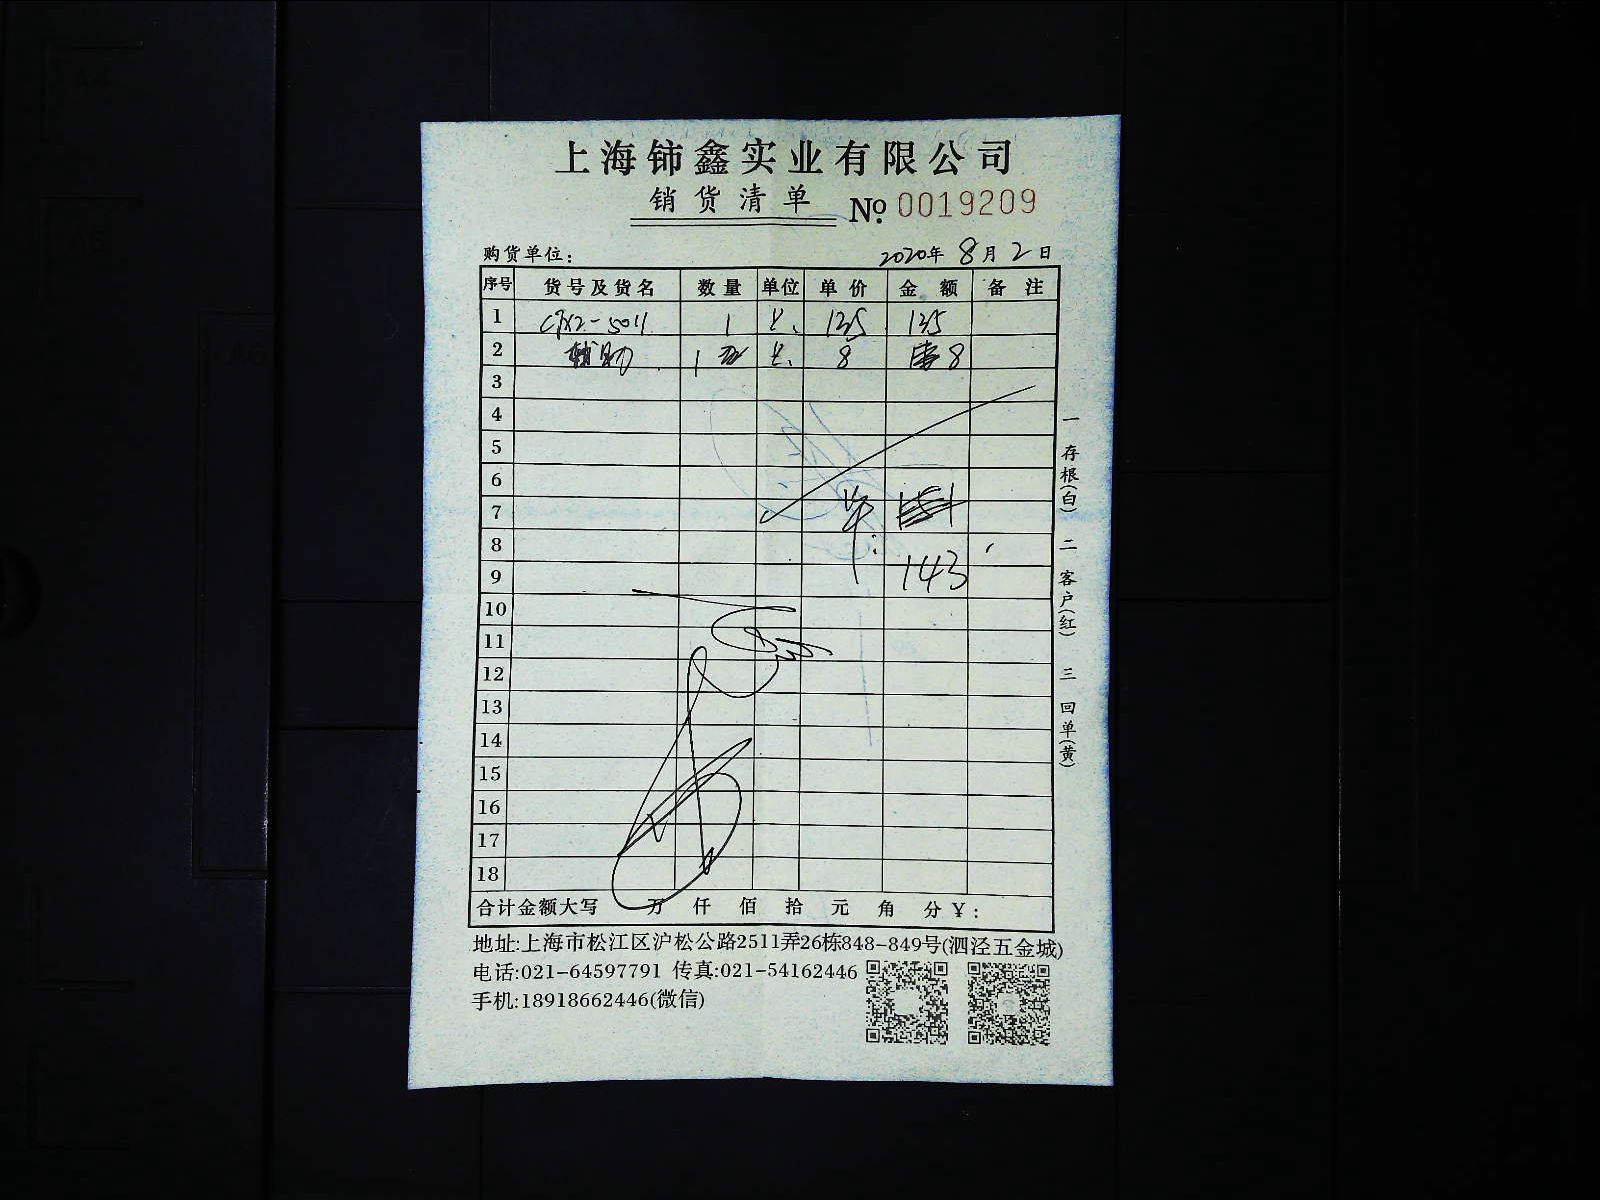 上海铈鑫实业有限公司
销货清单 № 0019209
购货单位: 2020年 8月 2日
序号 货号及货名 数量 单位 单价 金额 备注
1 CJX2-5011 1 只 135 135
2 辅助 1 只 8 8
3
4
5
6
7
8
9 143
10
11
12
13
14
15
16
17
18
合计金额大写 万 仟 佰 拾 元 角 分 ¥:
地址:上海市松江区沪松公路2511弄26栋848-849号(泗泾五金城)
电话:021-64597791 传真:021-54162446
手机:18918662446(微信)
一存根(白) 二客户(红) 三回单(黄)